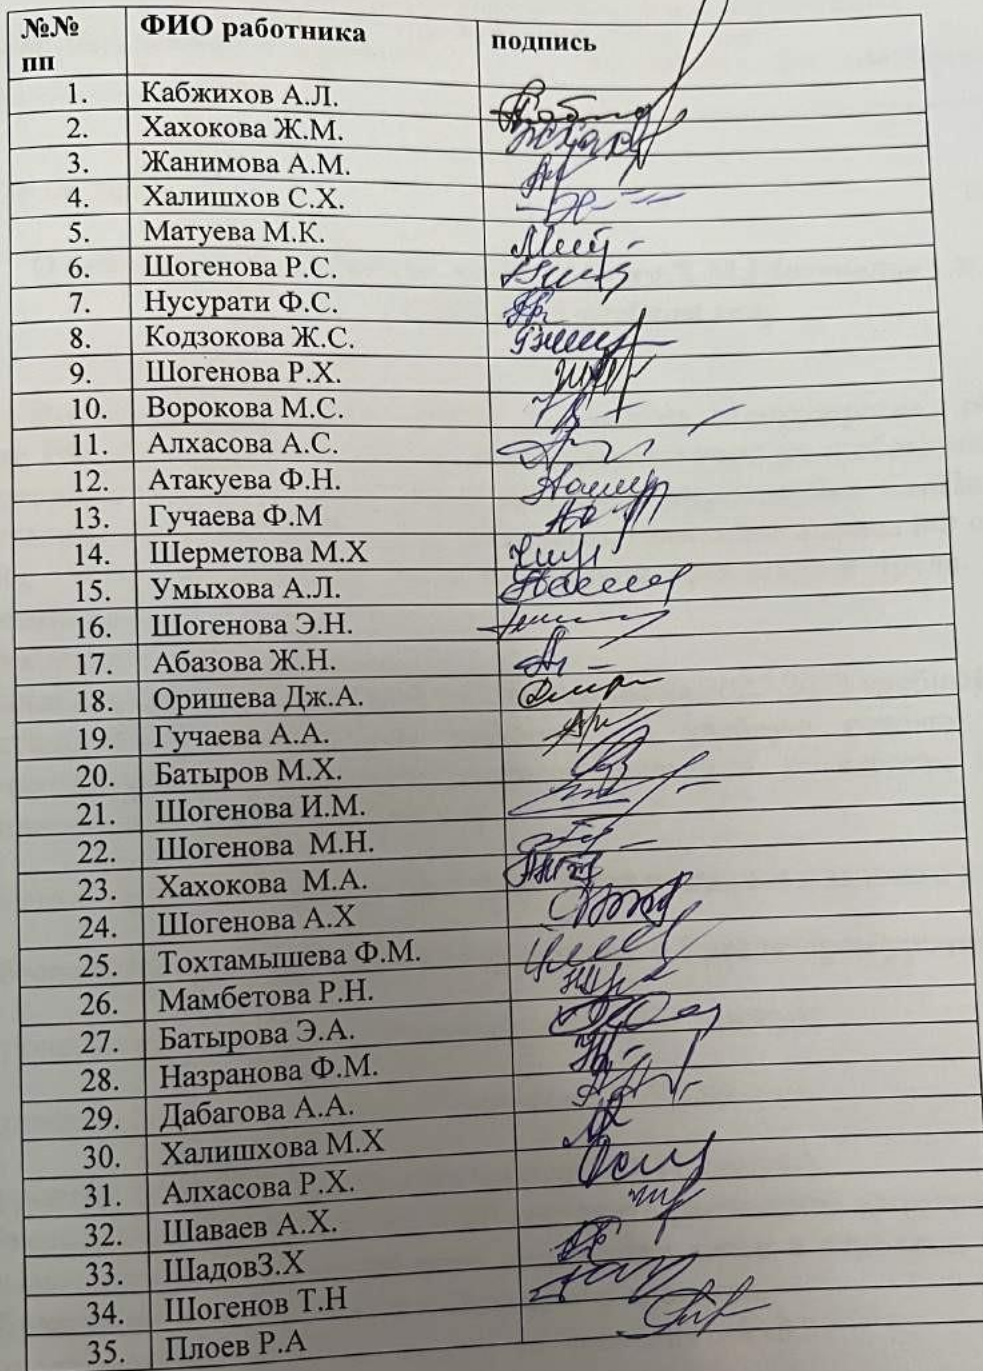 №№ пп ФИО работника подпись
1. Кабжихов А.Л.
2. Хахокова Ж.М.
3. Жанимова А.М.
4. Халишхов С.Х.
5. Матуева М.К.
6. Шогенова Р.С.
7. Нусурати Ф.С.
8. Кодзокова Ж.С.
9. Шогенова Р.Х.
10. Ворокова М.С.
11. Алхасова А.С.
12. Атакуева Ф.Н.
13. Гучаева Ф.М
14. Шерметова М.Х
15. Умыхова А.Л.
16. Шогенова Э.Н.
17. Абазова Ж.Н.
18. Оришева Дж.А.
19. Гучаева А.А.
20. Батыров М.Х.
21. Шогенова И.М.
22. Шогенова М.Н.
23. Хахокова М.А.
24. Шогенова А.Х
25. Тохтамышева Ф.М.
26. Мамбетова Р.Н.
27. Батырова Э.А.
28. Назранова Ф.М.
29. Дабагова А.А.
30. Халишхова М.Х
31. Алхасова Р.Х.
32. Шаваев А.Х.
33. ШадовЗ.Х
34. Шогенов Т.Н
35. Плоев Р.А